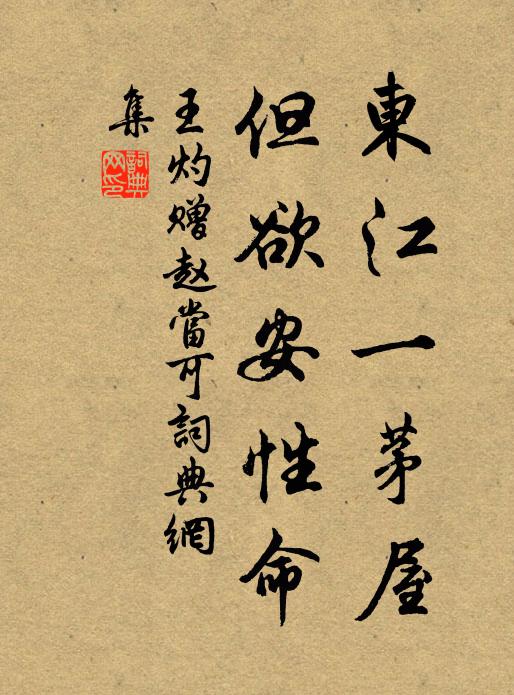 東江一茅屋
但欲安性命
王灼赠赵當可詞典網
集
詞典网印